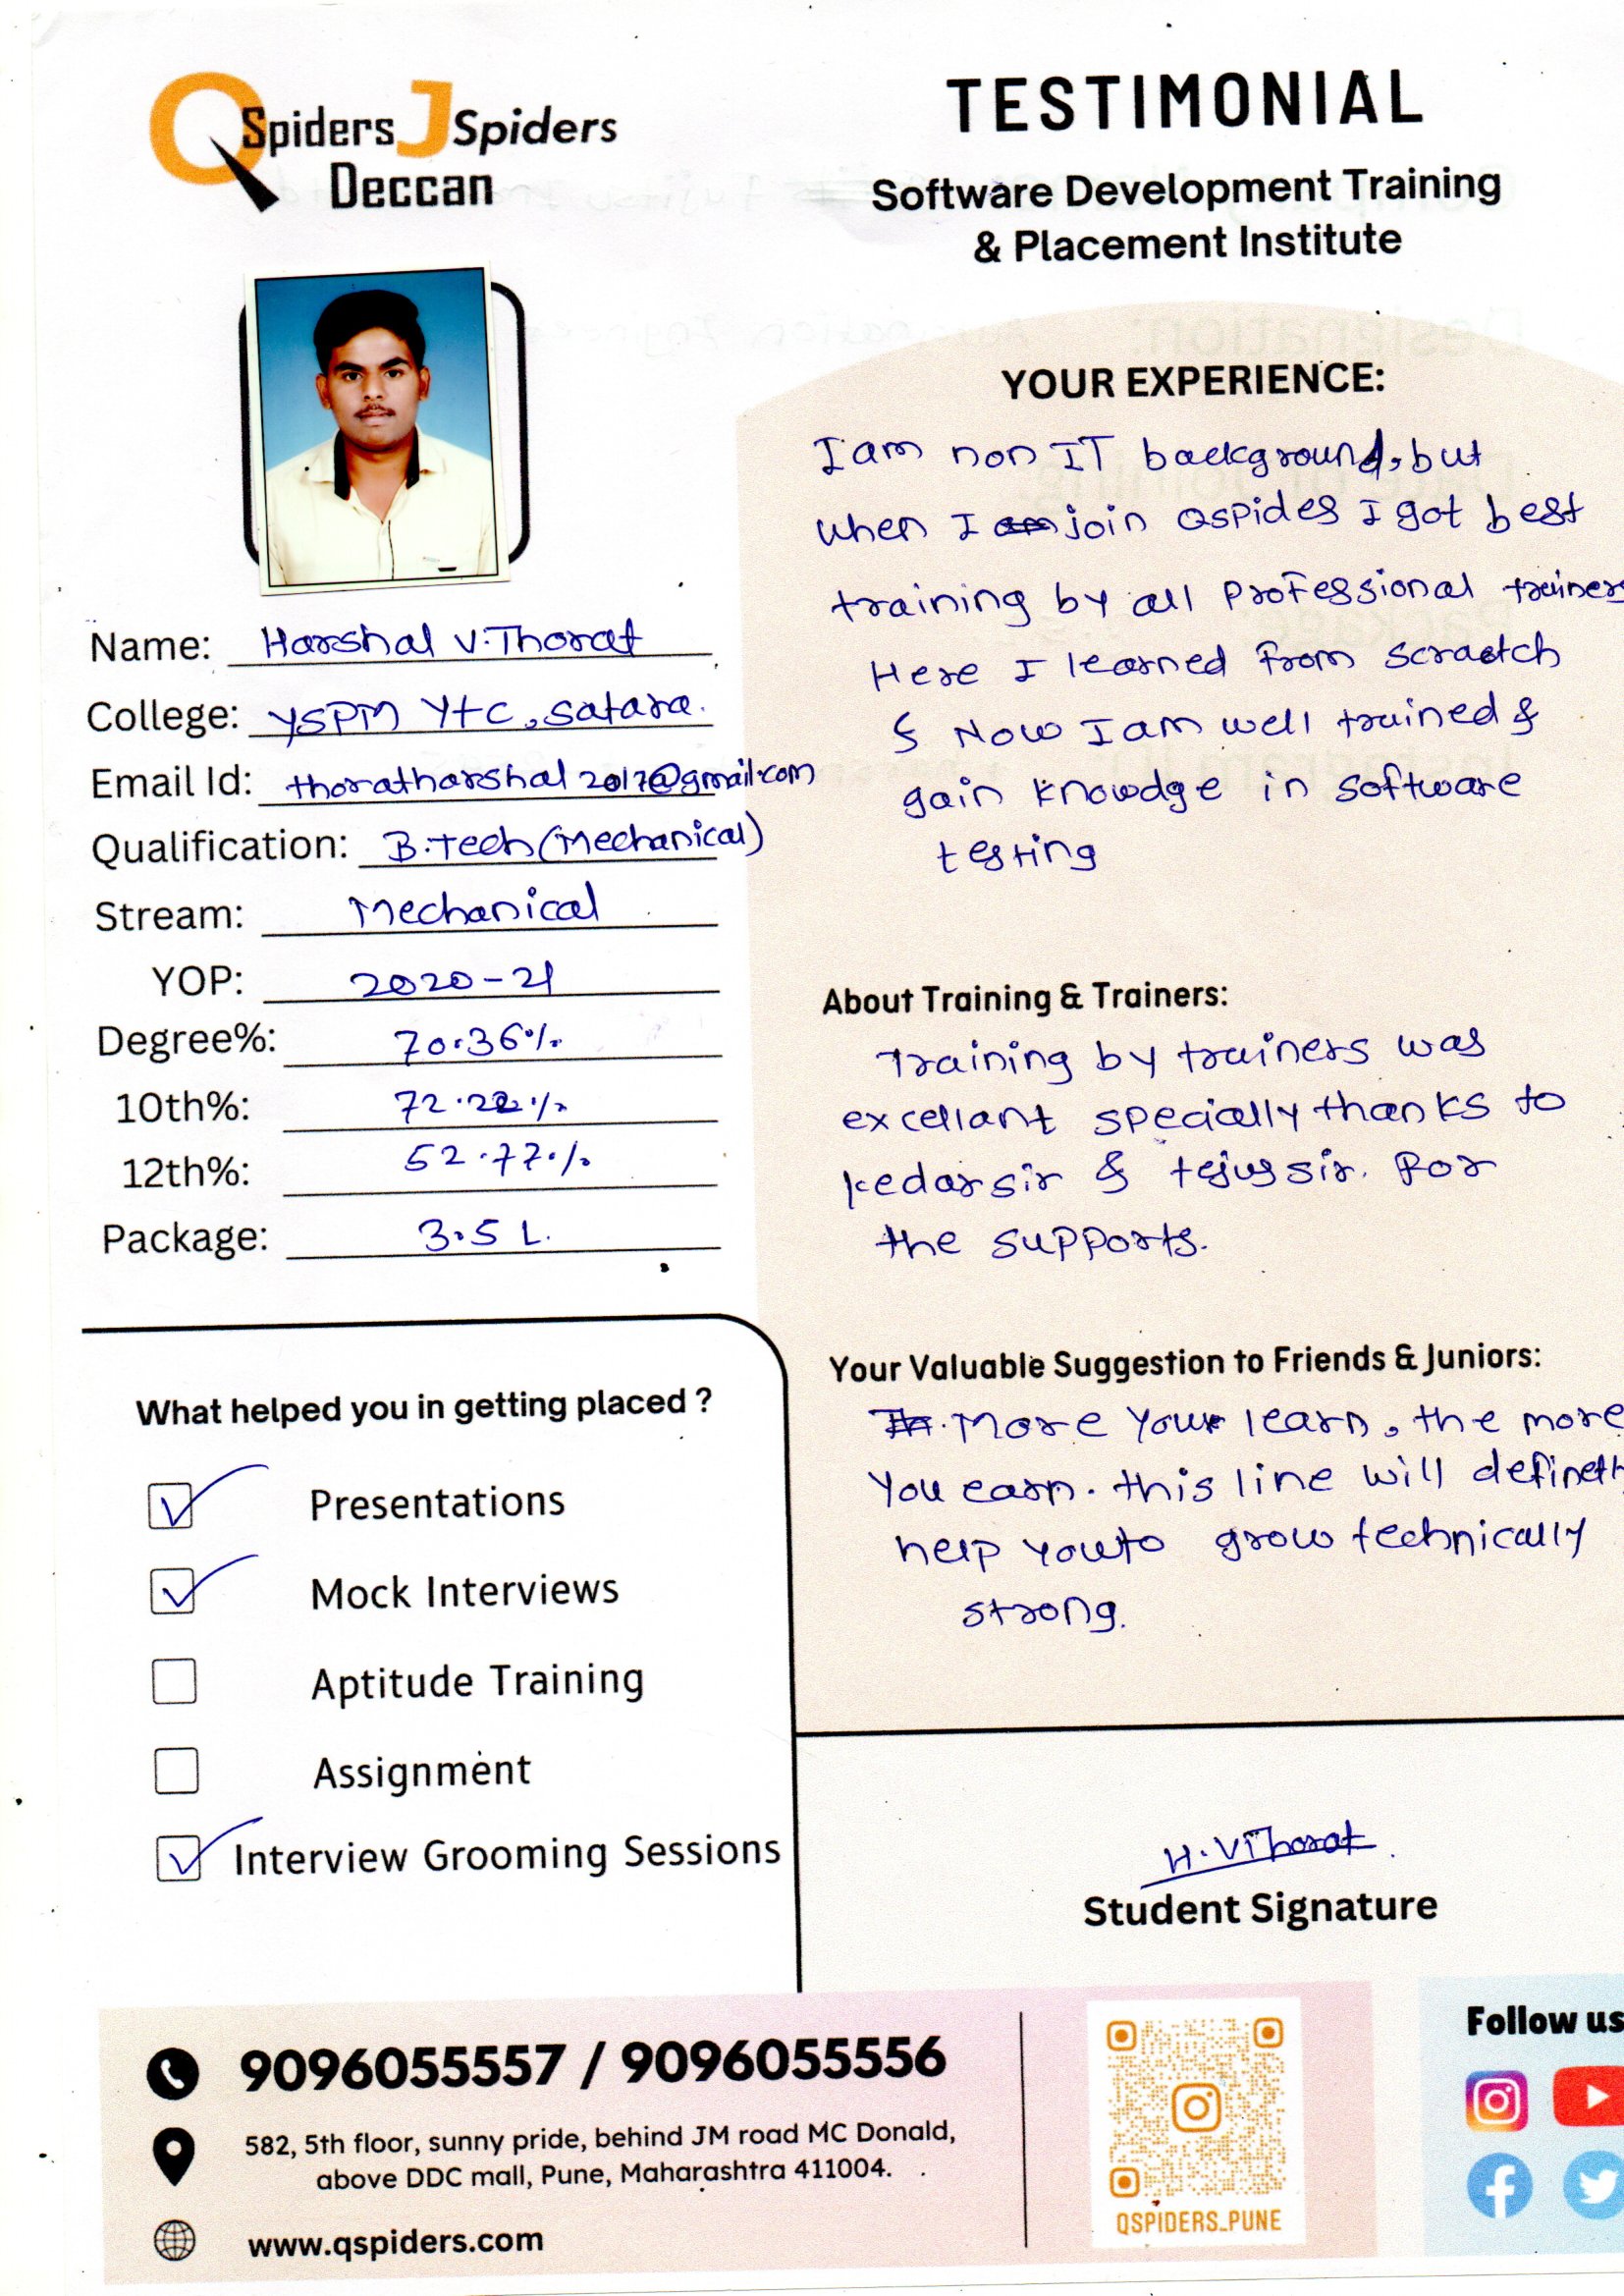 QSpiders JSpiders
Deccan
TESTIMONIAL
Software Development Training
& Placement Institute
Name: Harshal V. Thorat
College: YSPM YTC, Satara.
Email Id: thoratharshal2017@gmail.com
Qualification: B.Tech (Mechanical)
Stream: Mechanical
YOP: 2020-21
Degree%: 70.36%
10th%: 72.22%
12th%: 52.77%
Package: 3.5 L.
What helped you in getting placed ?
Presentations
Mock Interviews
Aptitude Training
Assignment
Interview Grooming Sessions
YOUR EXPERIENCE:
I am non IT background, but
when I join Qspides I got best
training by all Professional trainers
Here I learned from scraetch
& Now I am well trained &
gain knowdge in software
testing
About Training & Trainers:
Training by trainers was
excellant specially thanks to
kedar sir & tejus sir. For
the supports.
Your Valuable Suggestion to Friends & Juniors:
More you learn, the more
You earn. this line will definetl
help you to grow technically
strong.
H. V Thorat
Student Signature
9096055557 / 9096055556
582, 5th floor, sunny pride, behind JM road MC Donald,
above DDC mall, Pune, Maharashtra 411004.
www.qspiders.com
QSPIDERS_PUNE
Follow us